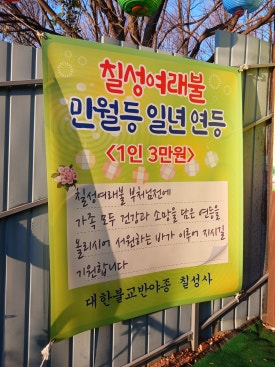 칠성여래불
만월등 일년 연등
<1인 3만원>
칠성여래불 부처님전에
가족 모두 건강과 소망을 담은 연등을
올리시어 서원하는 바가 이루어 지시길
기원합니다
대한불교반야종 칠성사